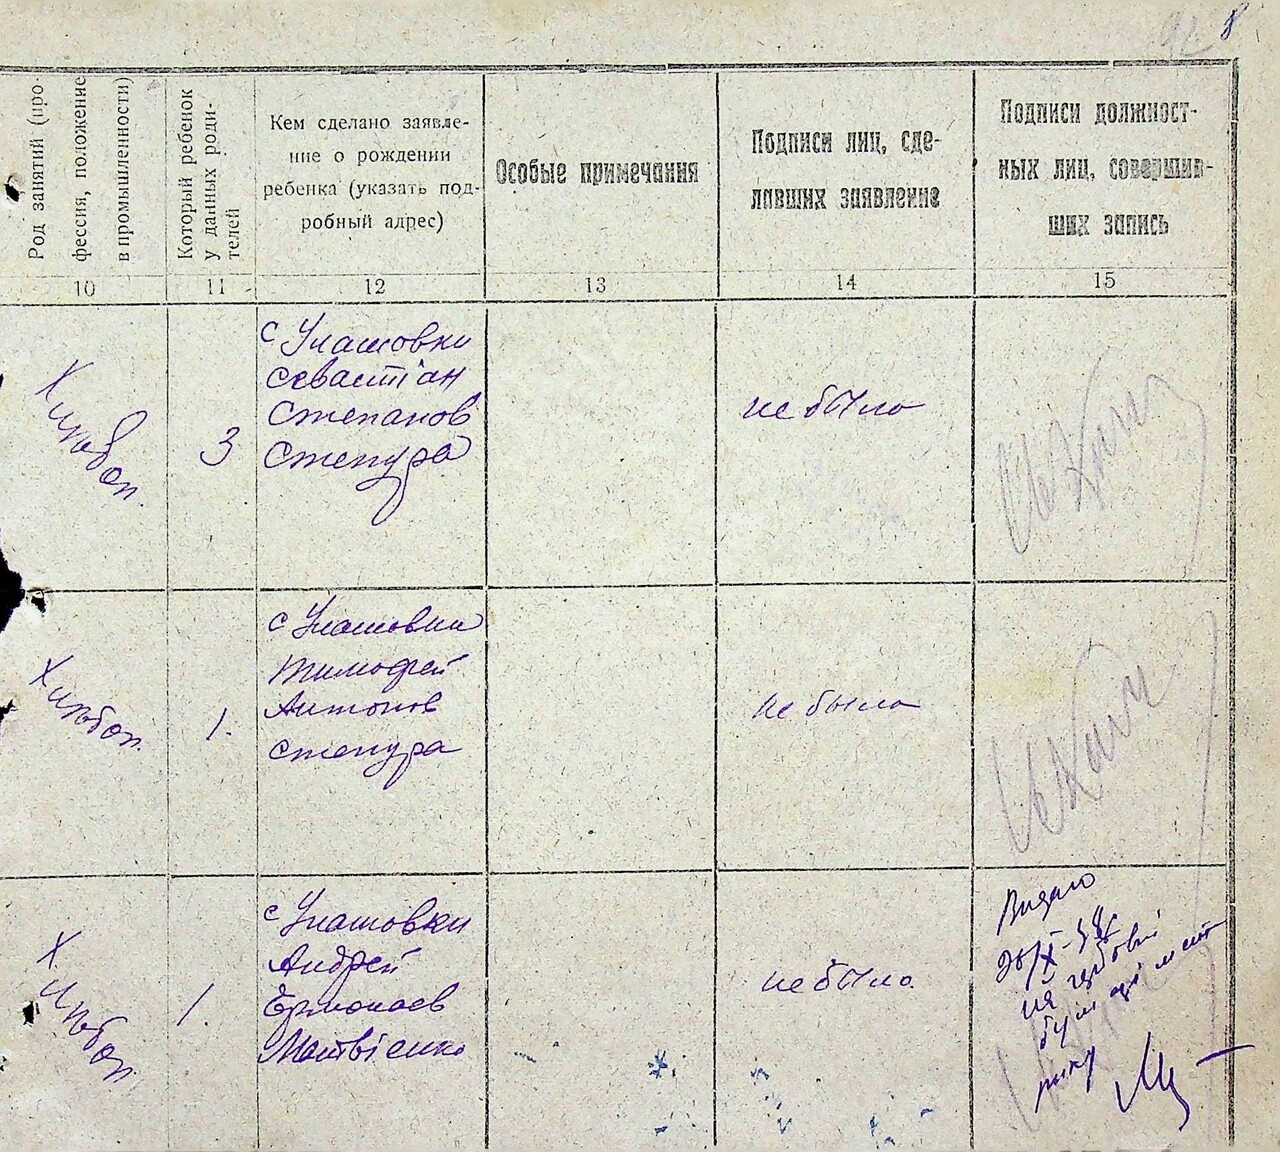 92 8
Род занятий (про-
фессия, положение
в промышленности)
Который ребенок
у данных роди-
телей
Кем сделано заявле-
ние о рождении
ребенка (указать под-
робный адрес)
Особые примечания
Подписи лиц, сде-
лавших заявление
Подписи должност-
ных лиц, совершив-
ших запись
10
11
12
13
14
15
Хлебоп.
3
с Улашовки
Севастіан
Степанов
Степура
не было
Хлебоп.
1.
с Улашовки
Тимофей
Антонов
Степура
не было
Хлебоп.
1.
с Улашовки
Андрей
Ермолаев
Матвіенко
не было
Видано
на